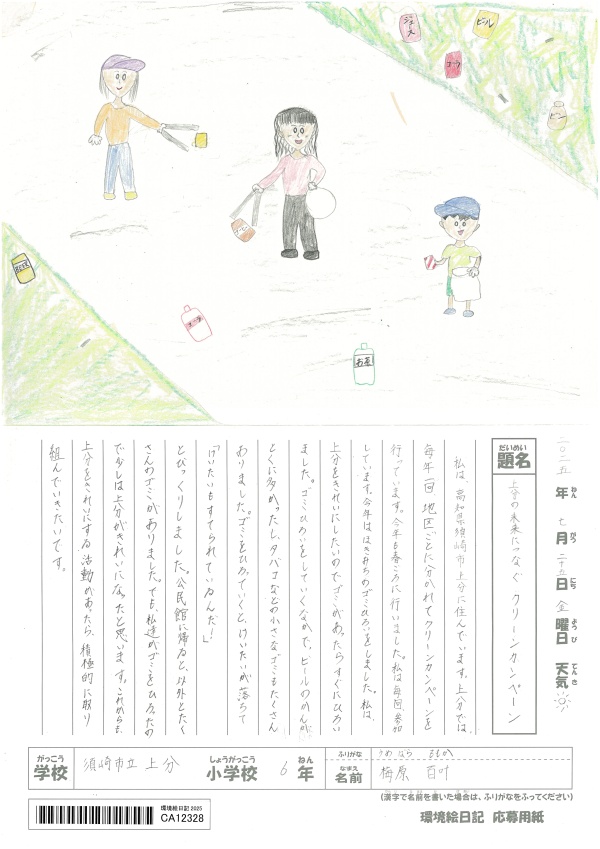 ジュース
ビール
コーラ
ビン
コーヒー
コーラ
お茶
二〇二五年 七月 二十五日 金曜日 天気
ねん がつ にち ようび てんき
だいめい
題名
上分の未来につなぐ クリーンカンペーン
私は、高知県須崎市上分に住んでいます。上分では、
毎年一回 地区ごとに分かれてクリーンカンペーンを
行っています。今年も春ごろに行いました。私は毎回参加
しています。今年はほきみちのゴミひろいをしました。私は、
上分をきれいにしたいのでゴミがあったらすぐにひろい
ました。ゴミひろいをしていくなかで、ビールのかんが
とくに多かったし、タバコなどの小さなゴミもたくさん
ありました。ゴミをひろっていくと、けいたいが落ちて
「けいたいもすてられているんだ！」
とびっくりしました。公民館に帰ると、以外とたく
さんのゴミがありました。でも、私達がゴミをひろったの
で少しは上分がきれいになったと思います。これからも、
上分をきれいにする活動があったら、積極的に取り
組んでいきたいです。
がっこう
学校
須崎市立 上分
しょうがっこう
小学校
6
ねん
年
ふりがな
うめはら ももか
なまえ
名前
梅原 百叶
(漢字で名前を書いた場合は、ふりがなをふってください)
環境絵日記 2025
CA12328
環境絵日記 応募用紙